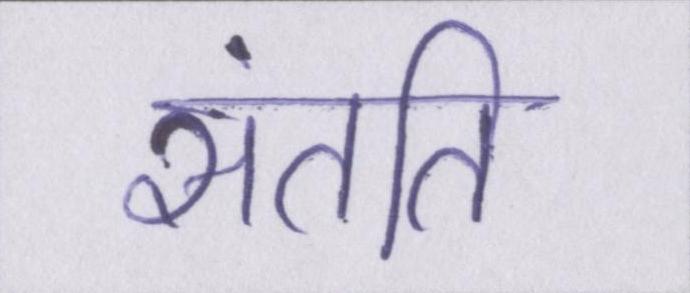 संतति